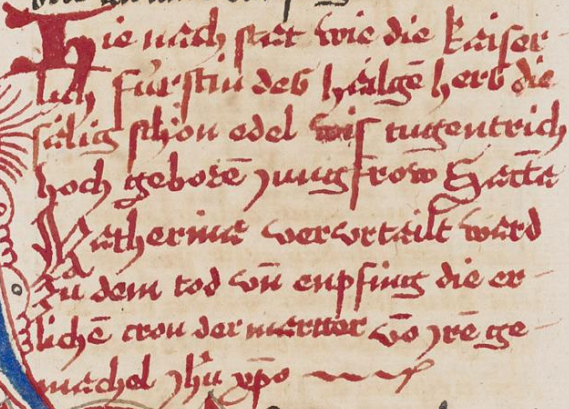 Hie nach stat wie die kaiser
lich fúrstin des hailgē herts die
sälig schön edel wis tugentrich
hoch geborē jungfrow Sancta
Katherina verurtailt ward
zu dem tod vn̄ enpfing die er
lichē cron der marter vō jrē ge
machel jhū xp̄o